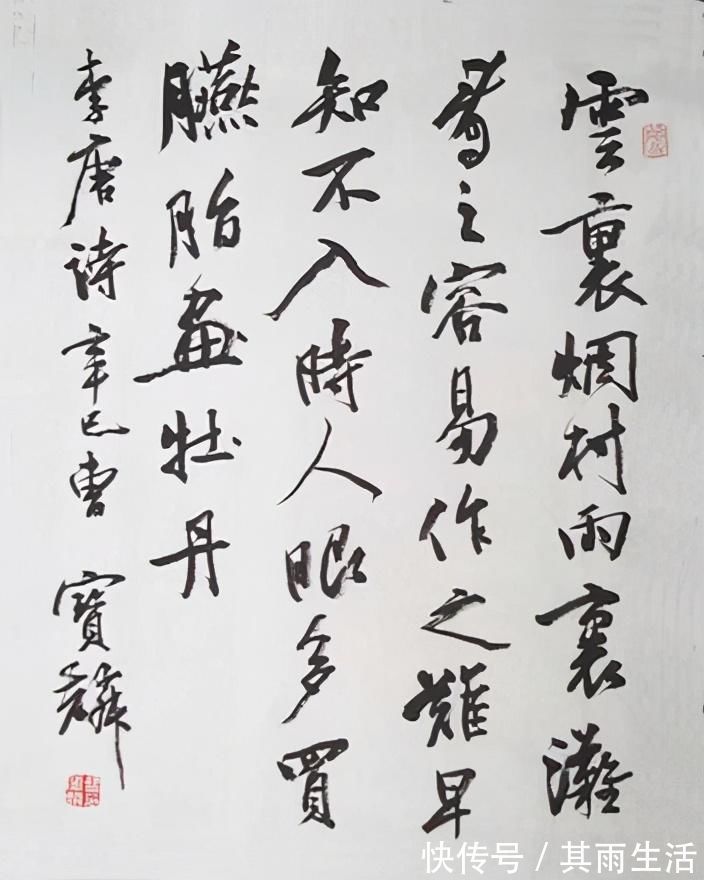 雲裏烟村雨裏灘
看之容易作之難早
知不入時人眼多買
臙脂畫牡丹
李唐詩辛巳曹寶麟
快传号 / 其雨生活